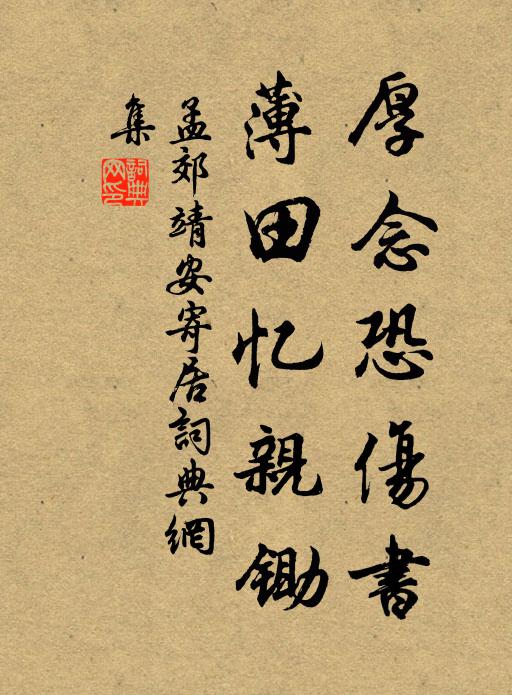 厚念恐傷書
薄田忆親鋤
孟郊靖安寄居詞典網
集
詞典
网印